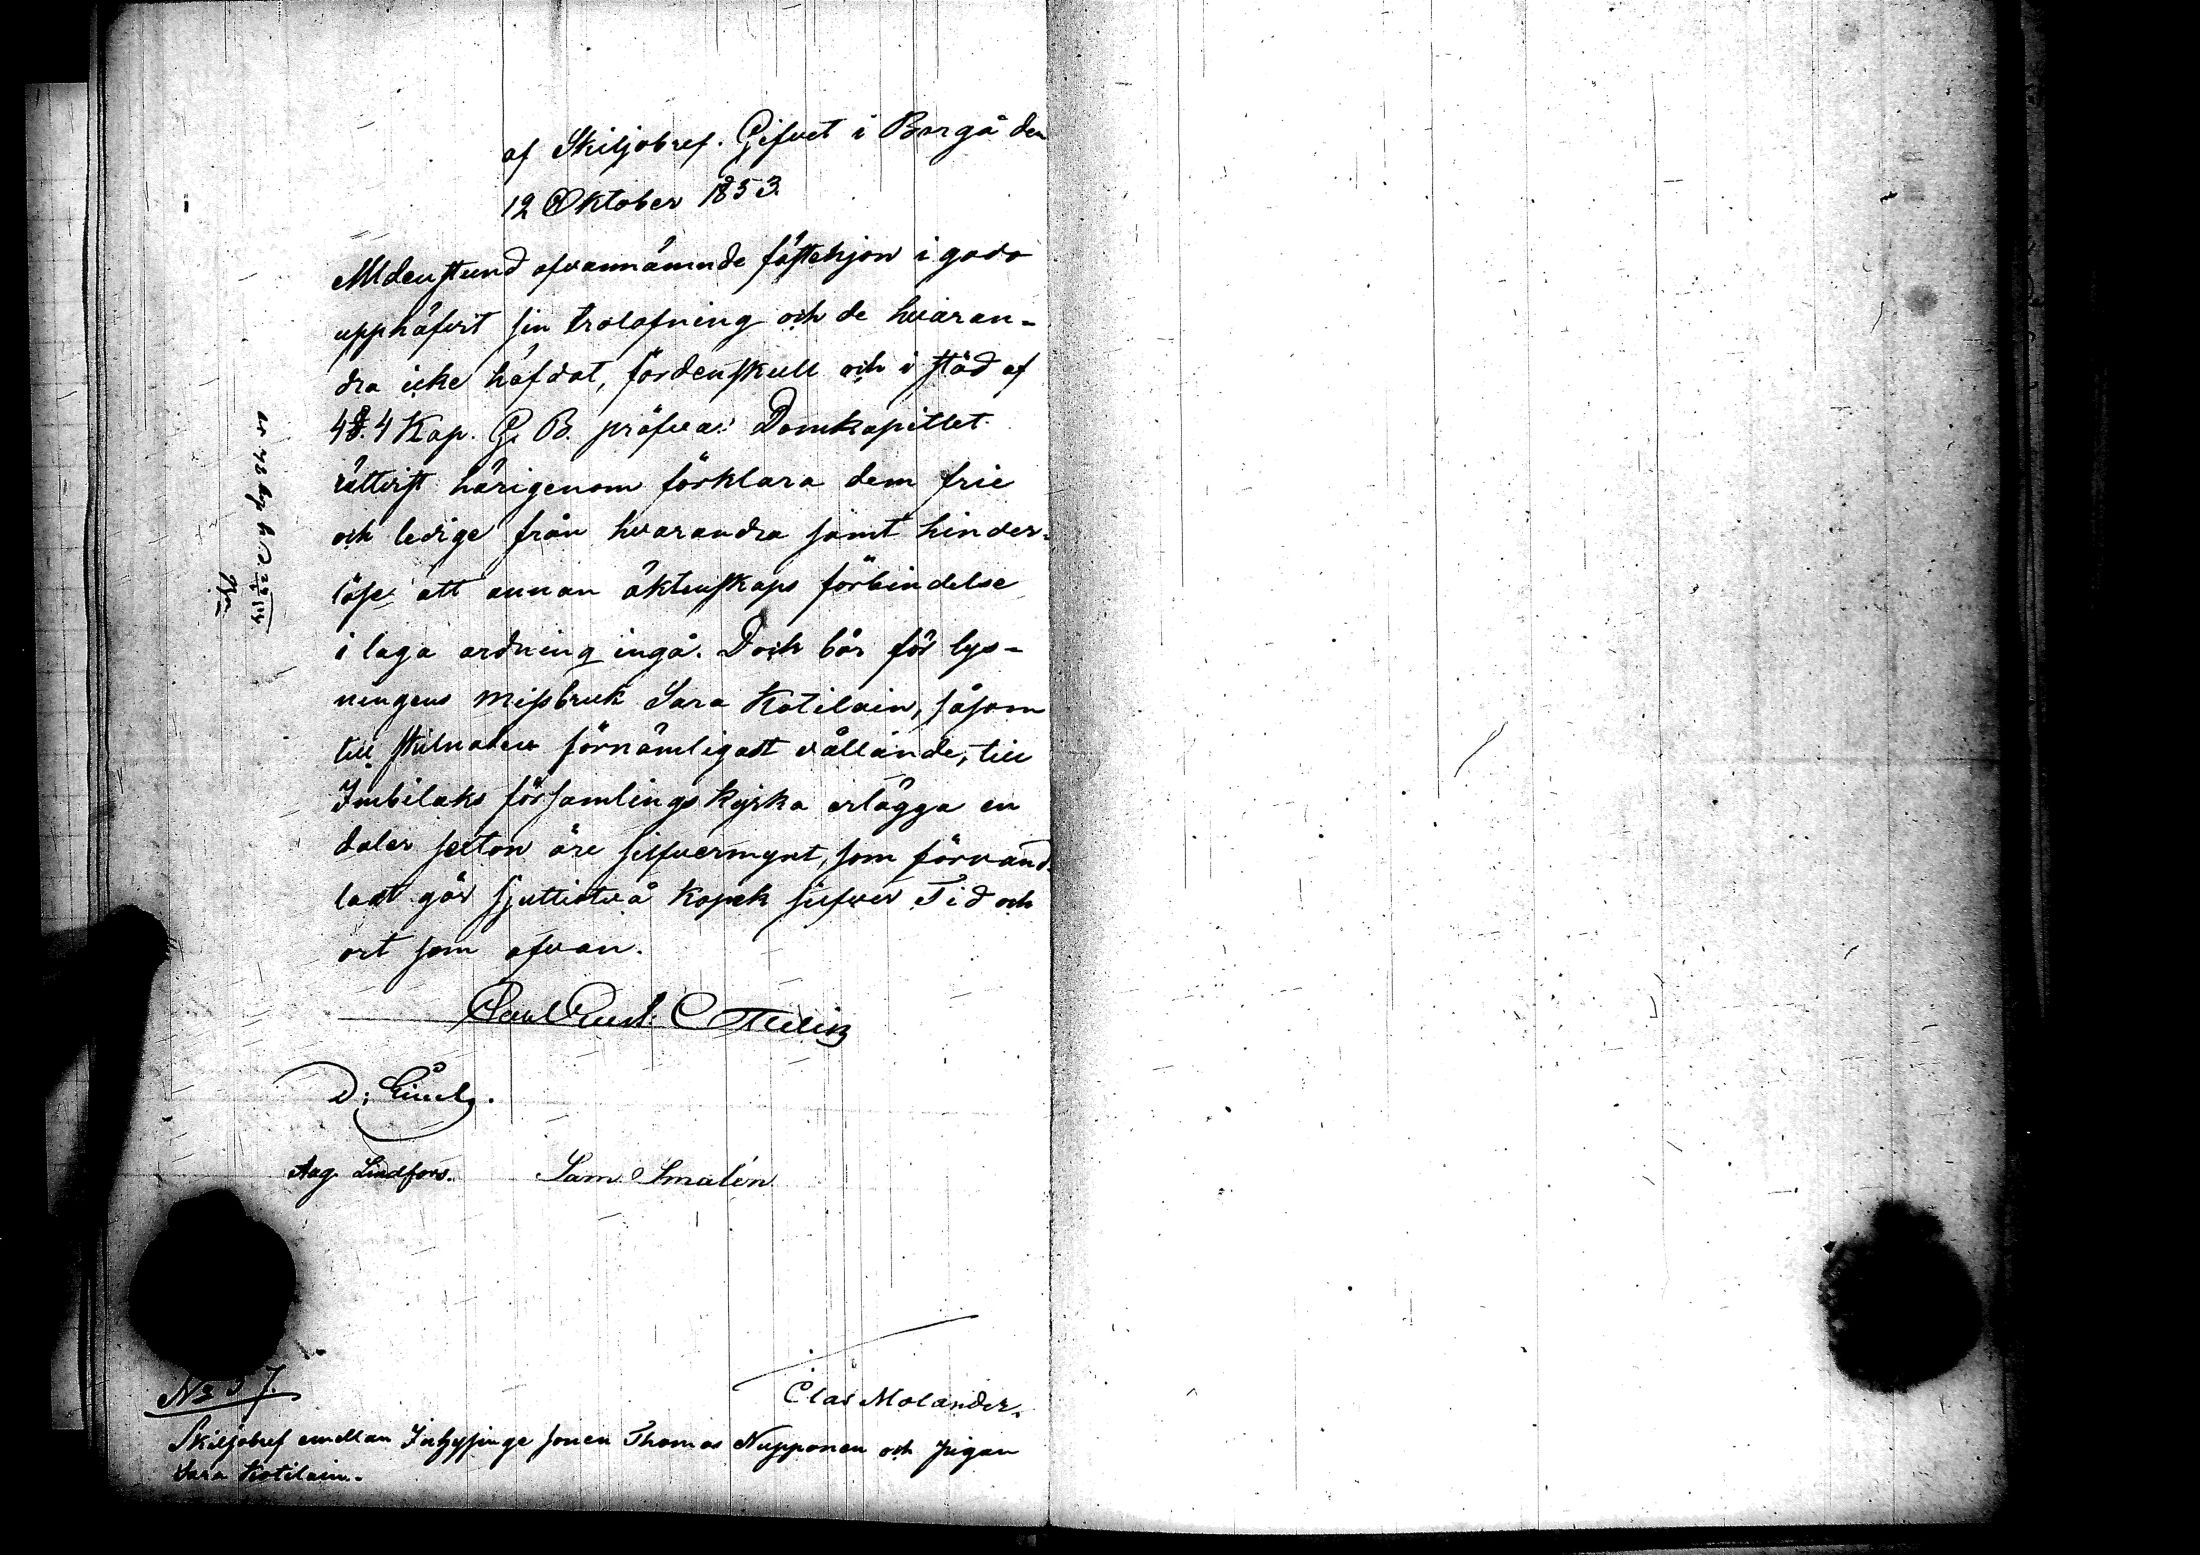 af Skiljobref. Gifvet i Borgå den
12 Oktober 1853.
Aldenstund ofvannämnde fästehjon i godo
upphäfvit sin trolofning och de hvaran-
dra icke häfdat, fördenskull och i stöd af
4 §. 4 Kap. G. B. pröfvar Domkapitlet
rättvist härigenom förklara dem frie
och ledige från hvarandra samt hinder-
löse att annan äktenskaps förbindelse
i laga ordning ingå. Dock bör för lys-
ningens missbruk Sara Kotilain, såsom
till skilnaden förnämligast vållande, till
Imbilaks församlings kyrka erlägga en
daler sexton öre silfvermynt, som förvand-
ladt gör sjuttiotvå kopek silfver Tid och
ort som ofvan.
Aug. Lindfors. Sam. Smalén
No 37.
Clas Molander.
Skiljobref emellan Inhysinge sonen Thomas Nupponen och pigan
Sara Kotilain.